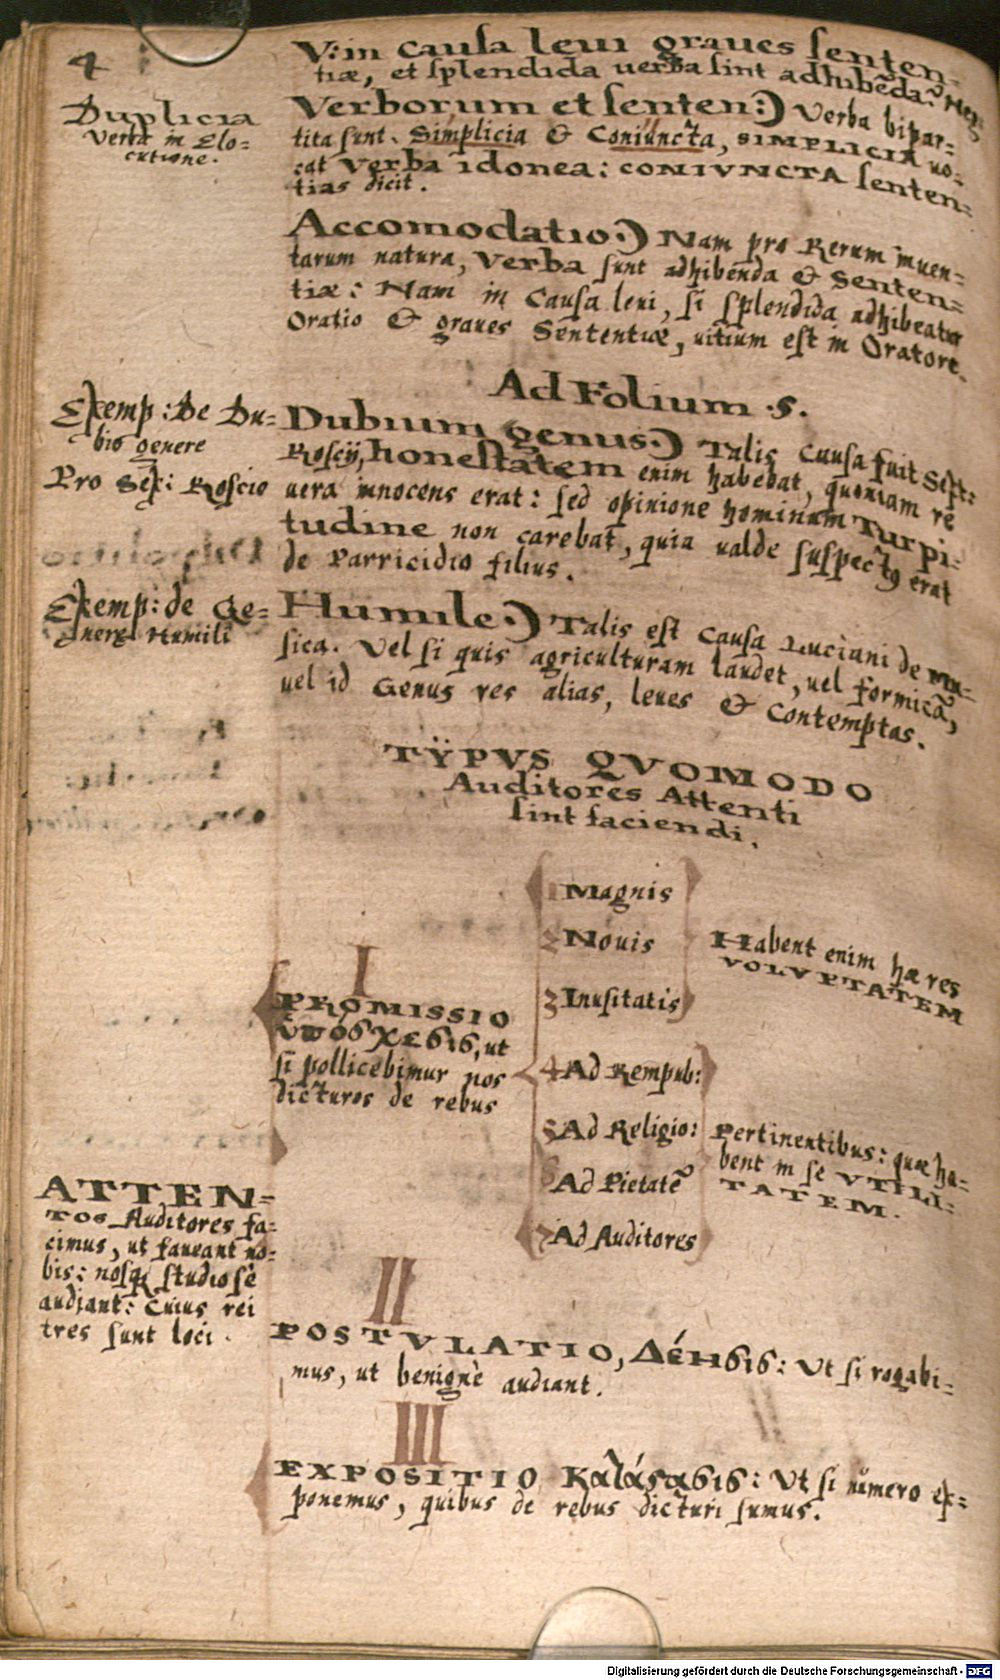 4
V: in causa leui graues senten-
tiæ, et splendida uerba sint adhibēda. Neq;
Duplicia
Verba in Elo-
cutione.
Verborum et senten:) Verba bipar-
tita sunt. Simplicia & Coniuncta, SIMPLICIA uo-
cat Verba idonea: CONIVNCTA senten-
tias dicit.
Accomodatio.) Nam pro Rerum inuen-
tarum natura, Verba sunt adhibenda & Senten-
tiæ: Nam in Causa leui, si splendida adhibeatur
Oratio & graues Sententiæ, uitium est in Oratore.
Ad Folium .5.
Exemp: De Du-
bio genere
Pro Sex: Roscio
Dubium genus.) Talis Causa fuit Sext:
Roscij, honestatem enim habebat, quoniam re
uera innocens erat: sed opinione hominum Turpi-
tudine non carebat, quia ualde suspectus erat
de Parricidio filius.
Exemp: de Ge-
nere Humili
Humile.) Talis est Causa Luciani de mu-
sica. Vel si quis agriculturam laudet, uel formicā,
uel id Genus res alias, leues & Contemptas.
TŸPVS QVOMODO
Auditores Attenti
sint faciendi.
I
PROMISSIO
ὑπόσχεσις, ut
si pollicebimur nos
dicturos de rebus
1 Magnis
2 Nouis
3 Inusitatis
Habent enim hæ res
VOLVPTATEM
4 Ad Rempub:
5 Ad Religio:
6 Ad Pietatē
7 Ad Auditores
Pertinentibus: quæ ha-
bent in se VTILI-
TATEM.
ATTEN-
TOS Auditores fa-
cimus, ut faueant no-
bis: nosq; studiosè
audiant: Cuius rei
tres sunt loci.
II
POSTVLATIO, Δέησις: Ut si rogabi-
mus, ut benignè audiant.
III
EXPOSITIO Κατάστασις: Ut si numero ex-
ponemus, quibus de rebus dicturi sumus.
Digitalisierung gefördert durch die Deutsche Forschungsgemeinschaft - DFG